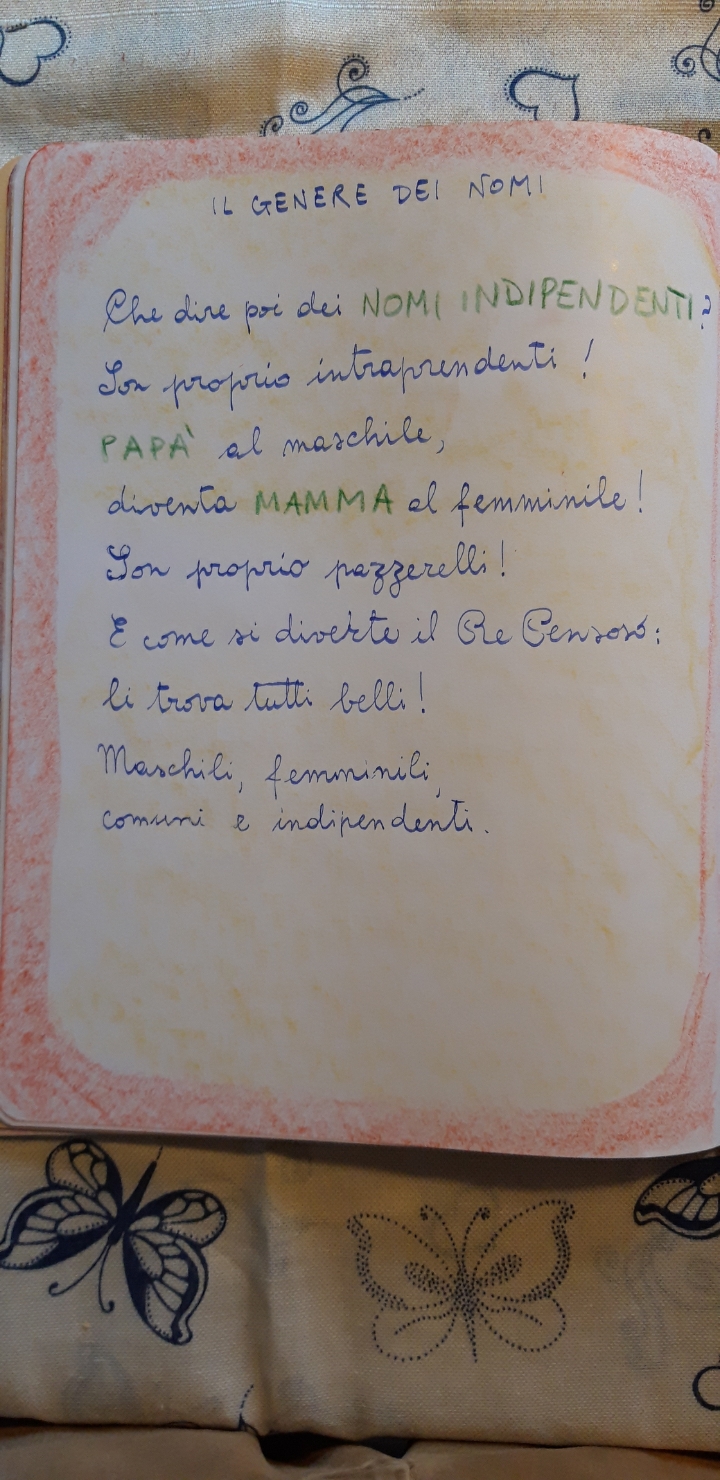 IL GENERE DEI NOMI
Che dire poi dei NOMI INDIPENDENTI?
Son proprio intraprendenti!
PAPÀ al maschile,
diventa MAMMA al femminile!
Son proprio pazzerelli!
E come si diverte il Re Pensoso:
li trova tutti belli!
Maschili, femminili,
comuni e indipendenti.